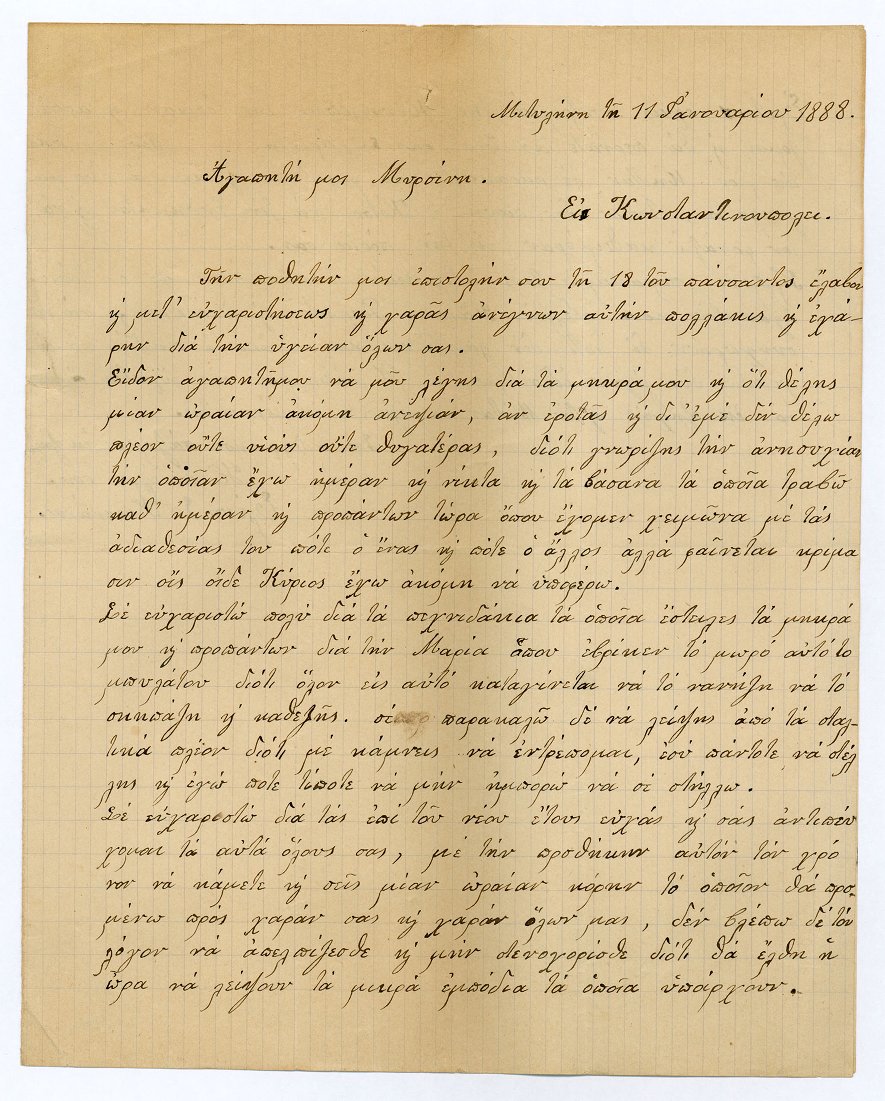 Μιτυλήνη τῇ 11 Ἰανουαρίου 1888.
Ἀγαπητή μοι Μυρσίνη.
Εἰς Κωνσταντινουπολει.
Τὴν ποθητήν μοι ἐπιστολήν σου τῇ 18 τοῦ παύσαντος ἔλαβον
ϗ μετ' εὐχαριστήσεως ϗ χαρᾶς ἀνέγνων αὐτήν πολλάκις ϗ ἐχά-
ρην διά τήν ὑγείαν ὅλων σας.
Εἶδον ἀγαπητῆμου νά μοῦ λέγης διά τά μηκρά μου ϗ ὅτι θέλης
μίαν ὡραίαν ἀκόμη ἀνεψιάν, ἀν ἐροτᾶς ϗ δι' ἐμέ δέν θέλω
πλέον οὔτε υἱούς οὔτε θυγατέρας, διότι γνωρίζης τήν ἀνησυχίαν
τήν ὁποῖαν ἔχω ἡμέραν ϗ νύκτα ϗ τά βάσανα τά ὁποῖα τραβῶ
καθ' ἡμέραν ϗ προπάντων τώρα ὅπου ἔχομεν χειμῶνα μέ τάς
ἀδιαθεσίας του πότε ὁ ἕνας ϗ πότε ὁ ἄλλος ἀλλά φαίνεται κρίμα
σιν οἷς οἶδε Κύριος ἔχω ἀκόμη νά ὑποφέρω.
Σέ εὐχαριστώ πολύ διά τά πεχνιδάκια τά ὁποῖα ἔστειλες τά μηκρά
μου ϗ προπάντων διά τήν Μαρία ὅπου εὑρίκεν τό μωρό αὐτό το
μπυλάτου διότι ὅλον εἰς αὐτό καταγίνεται νά τό νανήζη νά τό
σκηπάζη ϗ καθεξῆς. σέ παρακαλῶ δέ νά λείψης ἀπό τά σταλ-
τικά πλέον διότι μέ κάμνεις νά ἐντρέπομαι, ἐσύ πάντοτε νά στέλ
λης ϗ ἐγώ ποτε τίποτε νά μήν ἠμπορώ νά σέ στήλλω.
Σέ εὐχαριστώ διά τάς ἐπί τοῦ νέου ἔτους εὐχάς ϗ σάς ἀντιπεύ
χομαι τά αὐτά ὅλους σας, μέ τήν προσθήκην αὐτόν τόν χρό
νον νά κάμετε ϗ σεῖς μίαν ὡραίαν κόρην τό ὁποῖον θά προσ-
μένω πρός χαράν σας ϗ χαράν ὅλων μας, δέν βλέπω δέ τόν
λόγον νά ἀπελπίζεσθε ϗ μήν στενοχορίσθε διότι θά ἔλθη ἡ
ὥρα νά λείψουν τά μικρά ἐμπόδια τά ὁποῖα ὑπάρχουν.